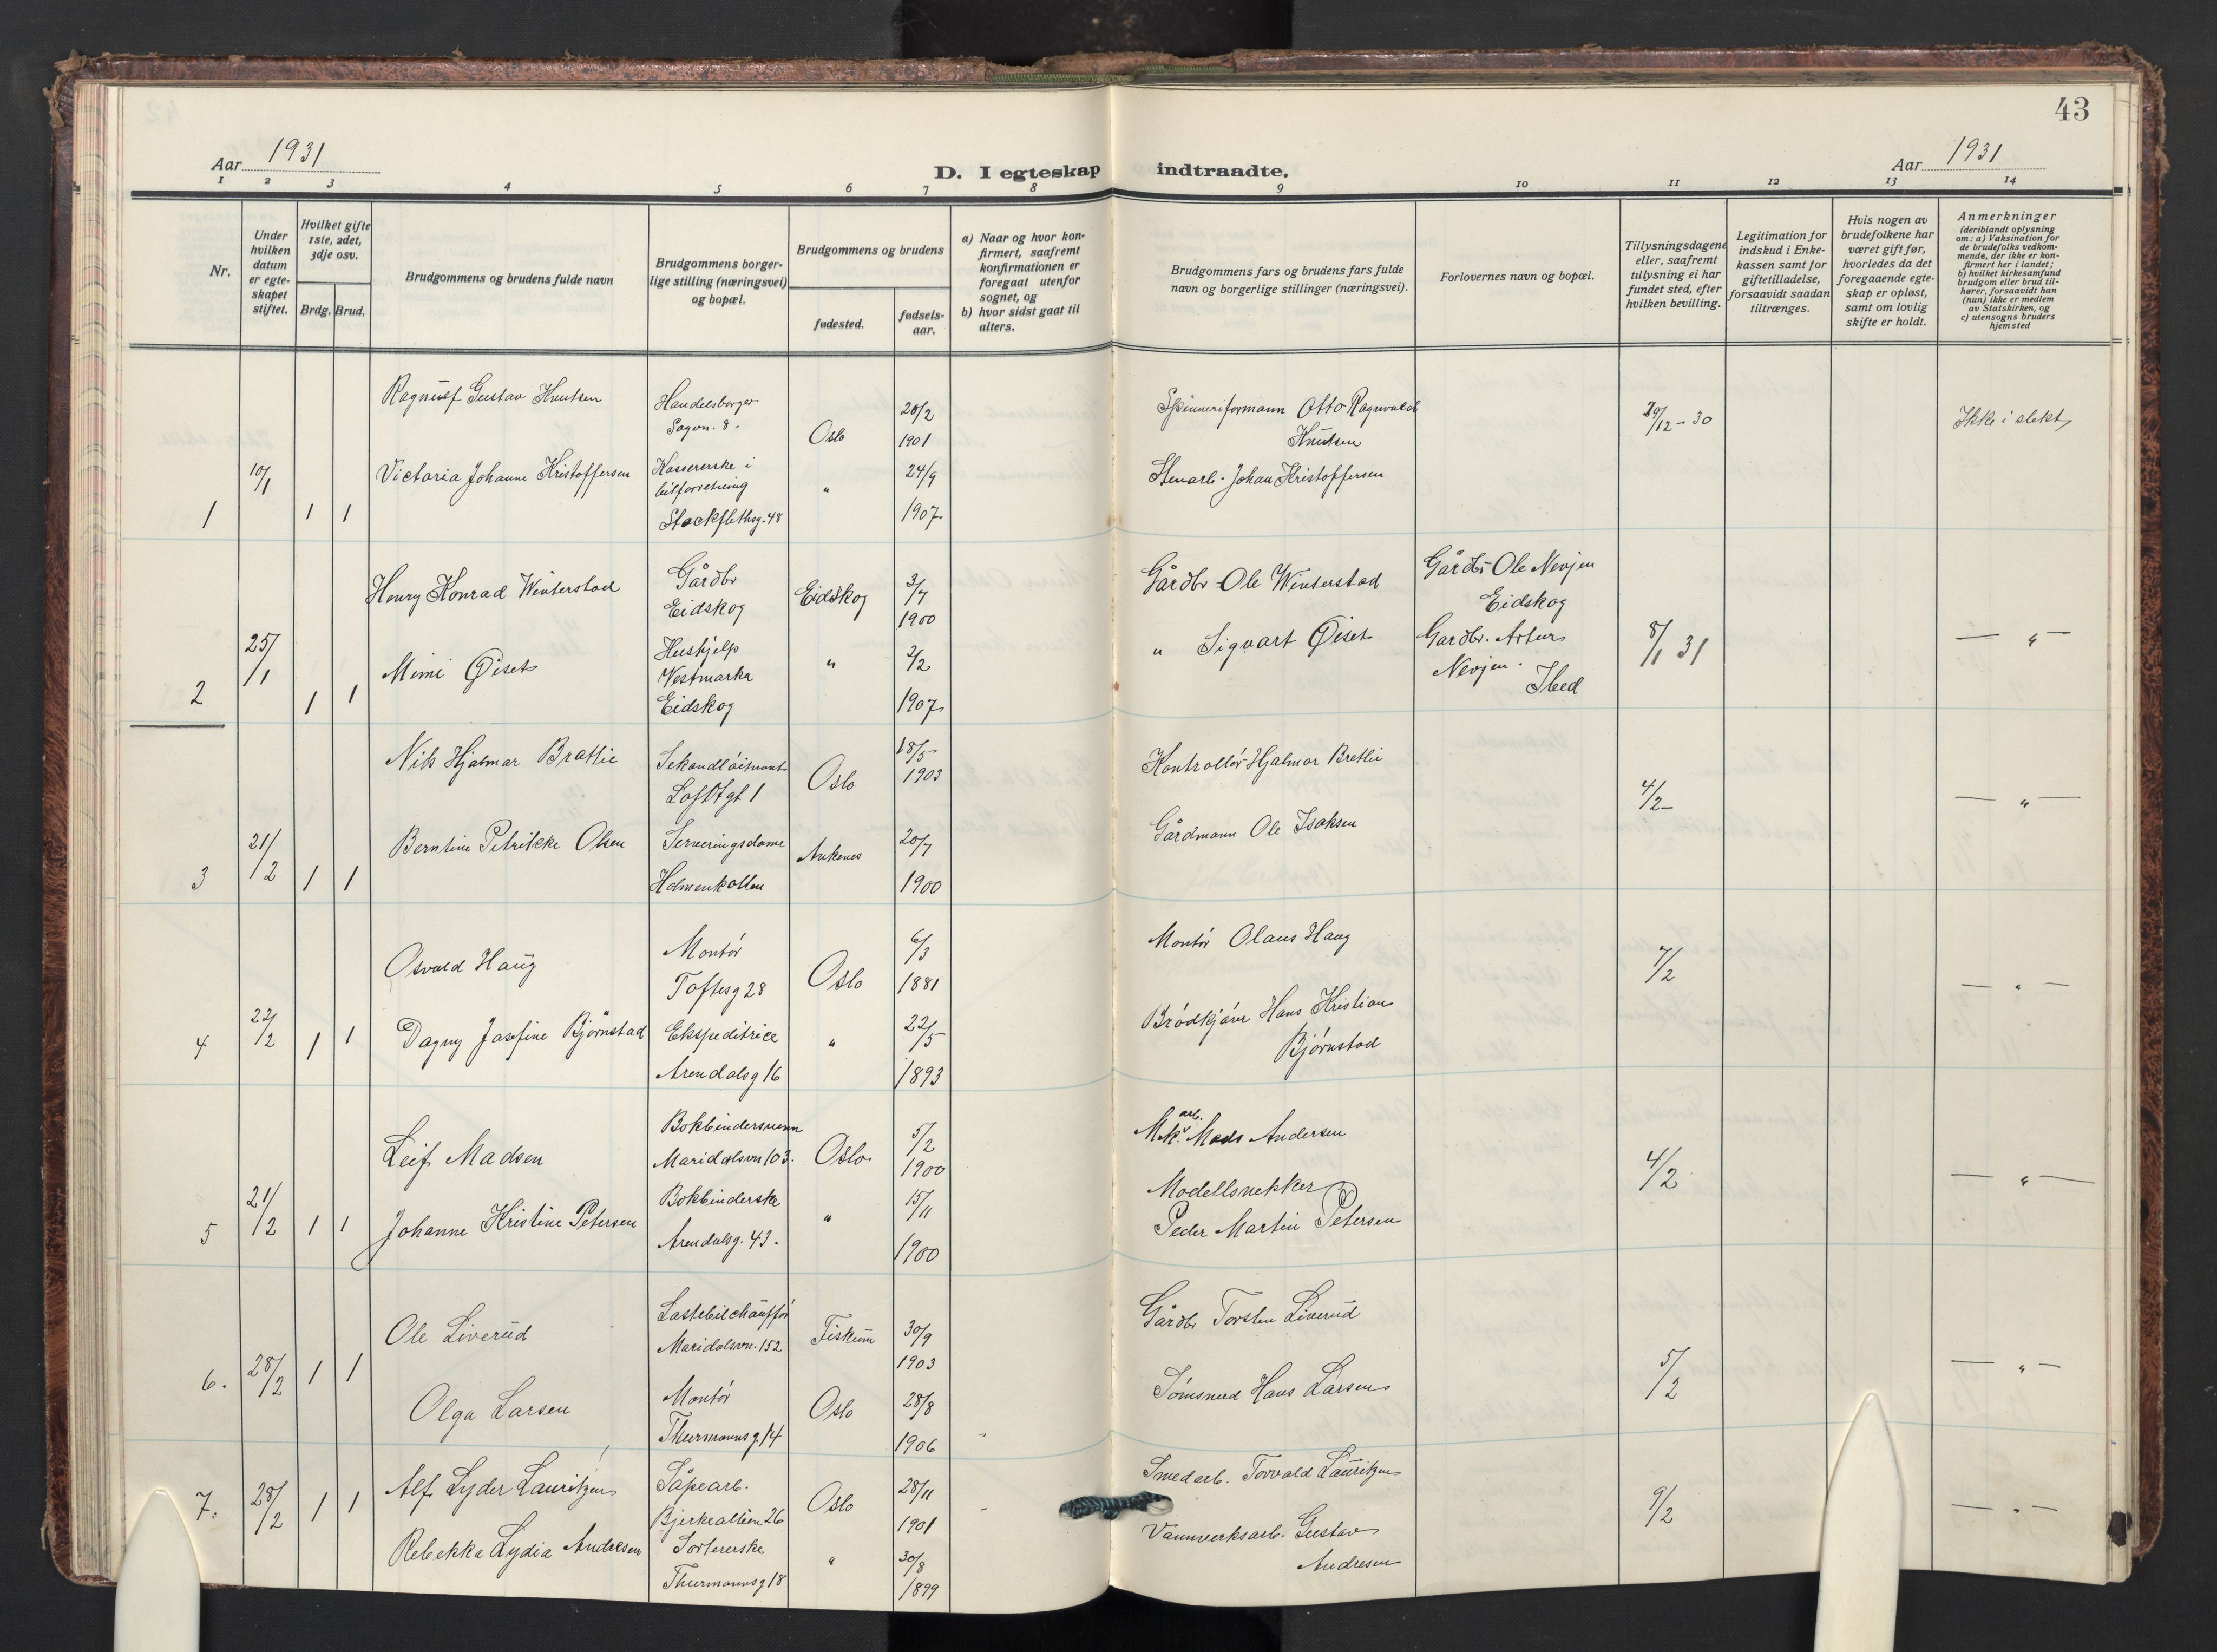 43
Aar 1931
D. I egteskap indtraadte.
Aar 1931
1 2 3 4 5 6 7 8 9 10 11 12 13 14
Nr.
Under
hvilken
datum
er egte-
skapet
stiftet.
Hvilket gifte
1ste, 2det,
3dje osv.
Brdg. Brud.
Brudgommens og brudens fulde navn
Brudgommens borger-
lige stilling (næringsvei)
og bopæl.
Brudgommens og brudens
fødested.
fødsels-
aar.
a) Naar og hvor kon-
firmert, saafremt
konfirmationen er
foregaat utenfor
sognet, og
b) hvor sidst gaat til
alters.
Brudgommens fars og brudens fars fulde
navn og borgerlige stillinger (næringsvei).
Forlovernes navn og bopæl.
Tillysningsdagene
eller, saafremt
tillysning ei har
fundet sted, efter
hvilken bevilling.
Legitimation for
indskud i Enke-
kassen samt for
giftetilladelse,
forsaavidt saadan
tiltrænges.
Hvis nogen av
brudefolkene har
været gift før,
hvorledes da det
foregaaende egte-
skap er opløst,
samt om lovlig
skifte er holdt.
Anmerkninger
(deriblandt oplysning
om: a) Vaksination for
de brudefolks vedkom-
mende, der ikke er kon-
firmert her i landet;
b) hvilket kirkesamfund
brudgom eller brud til-
hører, forsaavidt han
(hun) ikke er medlem
av Statskirken, og
c) utensogns bruders
hjemsted
1
10/1
1 1
Ragnulf Gustav Knutsen
Handelsborger
Sagvn. 8.
Oslo
20/2
1901
Spinneriformann Otto Ragnvald
Knutsen
29/12-30
Ikke i slekt
Victoria Johanne Kristoffersen
Kassererske i
bilforretning
Stockflethsg. 48
"
24/9
1907
Stenarb. Johan Kristoffersen
2
25/1
1 1
Henry Konrad Winterstad
Gårdbr
Eidskog
Eidskog
3/7
1900
Gårdbr Ole Winterstad
Gårdbr Ole Nevjen
Eidskog
8/1 31
— " —
Mimi Øiset
Hushjelp
Vestmarka
Eidskog
"
2/2
1907
" Sigvart Øiset
Gardbr. Artur
Nevjen.
Ibed
3
21/2
1 1
Nils Hjalmar Brattlie
Sekondløitnant
Loftsgt 1
Oslo
18/5
1903
Kontrollør Hjalmar Bretlie
4/2-
— " —
Berntine Petrikke Olsen
Serveringsdame
Holmenkollen
Ankenes
20/7
1900
Gårdmann Ole Isaksen
4
22/2
1 1
Osvald Haug
Montør
Toftesg 28
Oslo
6/3
1881
Montør Olaus Haug
7/2
— " —
Dagny Josefine Bjørnstad
Ekspeditrice
Arendalsg 16
"
22/5
1893
Brødkjører Hans Kristian
Bjørnstad
5
21/2
1 1
Leif Madsen
Bokbindersvenn
Maridalsvn 103.
Oslo
5/2
1900
Mek. arb. Mads Andersen
4/2
— " —
Johanne Kristine Petersen
Bokbinderske
Arendalsg. 43.
"
15/11
1900
Modellsnekker
Peder Martin Petersen
6.
28/2
1 1
Ole Liverud
Lastebilchauffør
Maridalsvn. 152
Fiskum
30/9
1903
Gårdbr Torsten Liverud
5/2
— " —
Olga Larsen
Montør
Thurmannsg. 14
Oslo
28/8
1906
Tømsmed Hans Larsen
7.
28/2
1 1
Alf Lyder Lauritzen
Såpearb.
Bjerkealleen 26
Oslo
28/11
1901
Smedarb. Torvald Lauritzen
9/2
— " —
Rebekka Lydia Andresen
Sortererske
Thurmannsg 18
"
30/8
1899
Vannverksarb. Gustav
Andresen